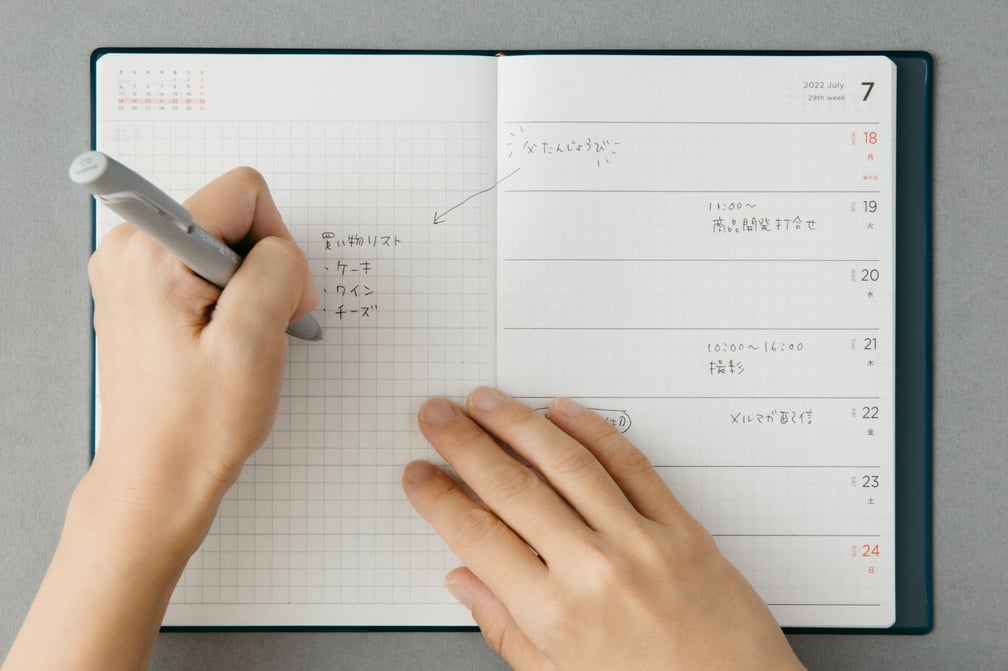 買い物リスト
・ケーキ
・ワイン
・チーズ
2022 July
29th week
7
父たんじょうび
18
MON
月
海の日
19
TUE
火
11:00〜
商品開発打合せ
20
WED
水
21
THU
木
10:00〜16:00
撮影
22
FRI
金
メルマガ配信
23
SAT
土
24
SUN
日